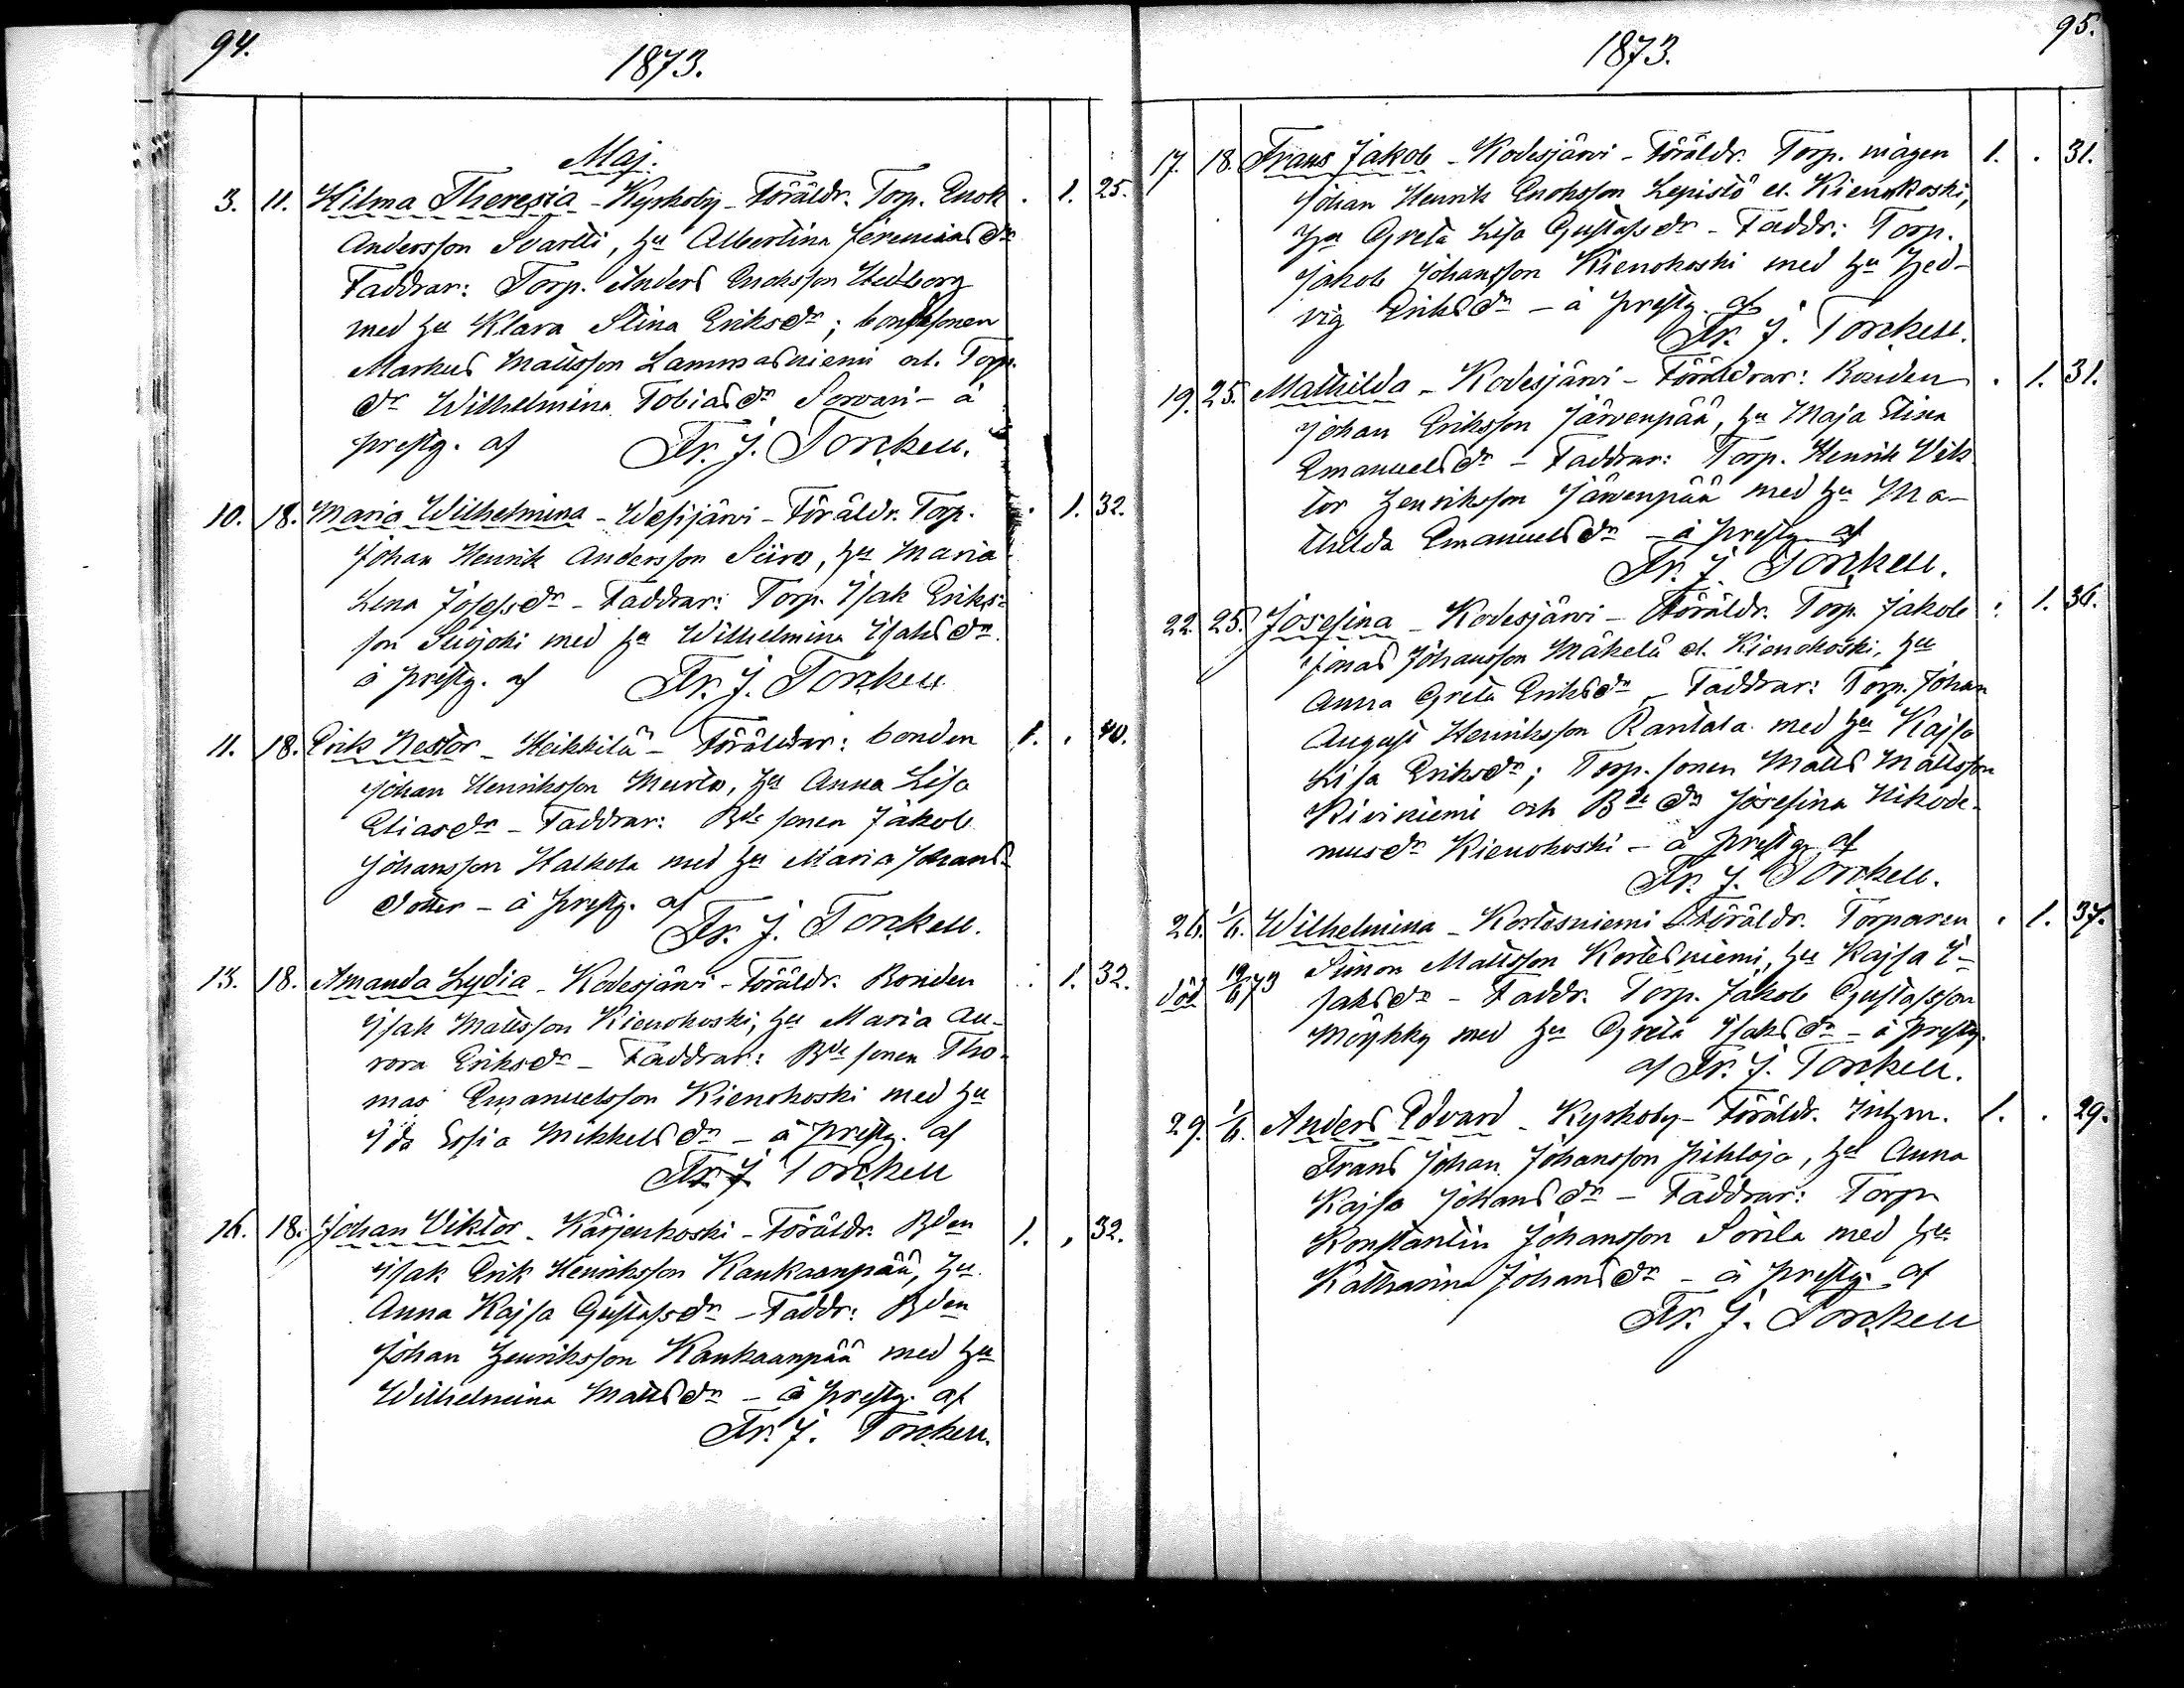 94.
1873.
Maj.
3. 11. Hilma Theresia - Kyrkoby - Föräldr. Torp. Enok . 1. 25.
Andersson Svartti, hu Albertina Jeremiasdr
Faddrar: Torp. Anders Enoksson Hedborg
med hu Klara Stina Eriksdr; bondesonen
Markus Mattsson Lammasniemi och Torp.
dr Wilhelmina Tobiasdr Sorvari - à
prestg. af Fr. J. Torckell.
10. 18. Maria Wilhelmina - Wesijärvi - Föräldr. Torp. . 1. 32.
Johan Henrik Andersson Siiro, hu Maria
Lena Josefsdr - Faddrar: Torp. Isak Eriks-
son Suojoki med hu Wilhelmina Isaksdr.
à prestg. af Fr. J. Torckell
11. 18. Erik Nestor - Heikkilä - Föräldrar: bonden 1. . 40.
Johan Henriksson Murto, hu Anna Lisa
Eliasdr - Faddrar: Bde sonen Jakob
Johansson Halkola med hu Maria Johans-
dotter - à prestg. af
Fr. J. Torckell.
13. 18. Amanda Lydia - Kodesjärvi - Föräldr. Bonden . 1. 32.
Isak Mattsson Kienokoski, hu Maria Au-
rora Eriksdr - Faddrar: Bde sonen Tho-
mas Emanuelsson Kienokoski med hu
Ida Sofia Mikkelsdr - à prestg. af
Fr. J Torckell
16. 18. Johan Viktor - Kärjenkoski - Föräldr. Bden 1. . 32.
Isak Erik Henriksson Kankaanpää, hu
Anna Kajsa Gustafsdr - Faddr: Bden
Johan Henriksson Kankaanpää med hu
Wilhelmina Mattsdr - à prestg. af
Fr. J. Torckell.
95.
1873.
17. 18. Frans Jakob - Kodesjärvi - Föräldr. Torp. mågen 1. . 31.
Johan Henrik Enoksson Lepistö el. Kienokoski,
hu Greta Lisa Gustafsdr - Faddr: Torp.
Jakob Johansson Kienokoski med hu Hed-
vig Eriksdr - à prestg. af
Fr. J. Torckell.
19. 25. Mathilda - Kodesjärvi - Föräldrar: Bonden . 1. 31.
Johan Eriksson Järvenpää, hu Maja Stina
Emanuelsdr - Faddrar: Torp. Henrik Vik-
tor Henriksson Järvenpää med hu Ma-
thilda Emanuelsdr - à prestg. af
Fr. J. Torckell.
22. 25. Josefina - Kodesjärvi - Föräldr. Torp. Jakob . 1. 36.
Jonas Johansson Mäkelä el. Kienokoski, hu
Anna Greta Eriksdr - Faddrar: Torp. Johan
August Henriksson Rantala med hu Kajsa
Lisa Eriksdr; Torp. sonen Matts Mattsson
Kiviniemi och Bde dr Josefina Nikode-
musdr Kienokoski - à prestg. af
Fr. J. Torckell.
26. 1/6. Wilhelmina - Kortesniemi - Föräldr. Torparen . 1. 37.
Simon Mattsson Kortesniemi, hu Kajsa I-
död 19/6 73 saksdr - Faddr. Torp. Jakob Gustafsson
Möykky med hu Greta Isaksdr - à prestg.
af Fr. J. Torckell.
29. 1/6. Anders Edvard - Kyrkoby - Föräldr. Inhm. 1. . 29.
Frans Johan Johansson Pihlaja, hu Anna
Kajsa Johansdr - Faddrar: Torp
Konstantin Johansson Sorila med hu
Katharina Johansdr - à prestg. af
Fr. J. Torckell